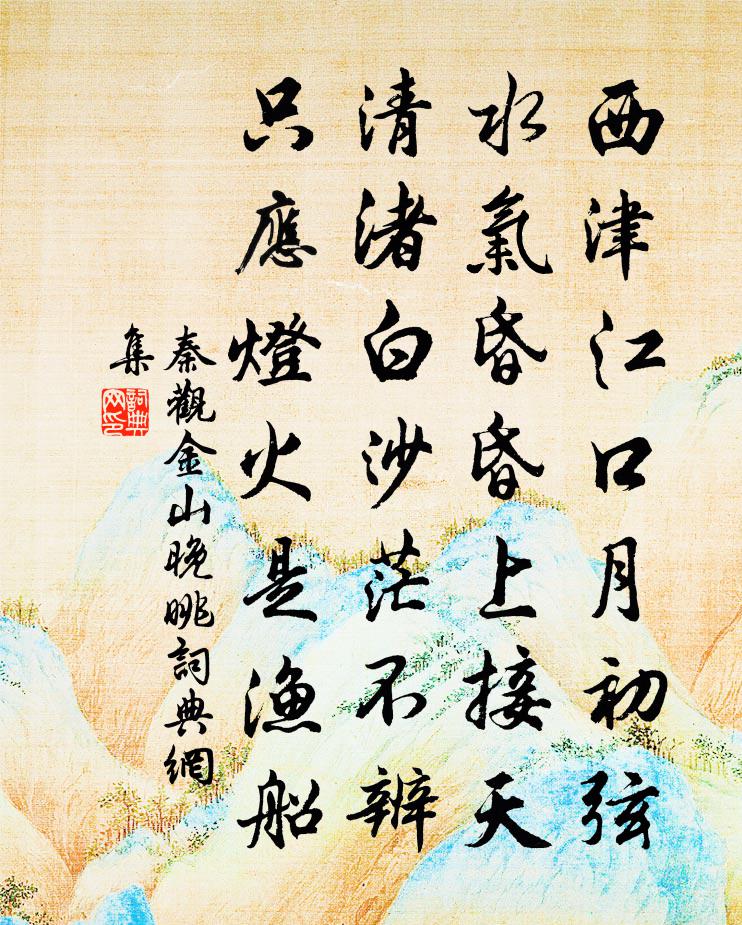 西津江口月初弦
水氣昏昏上接天
清渚白沙茫不辨
只應燈火是漁船
秦觀金山晚眺詞典網
集
詞典
网印